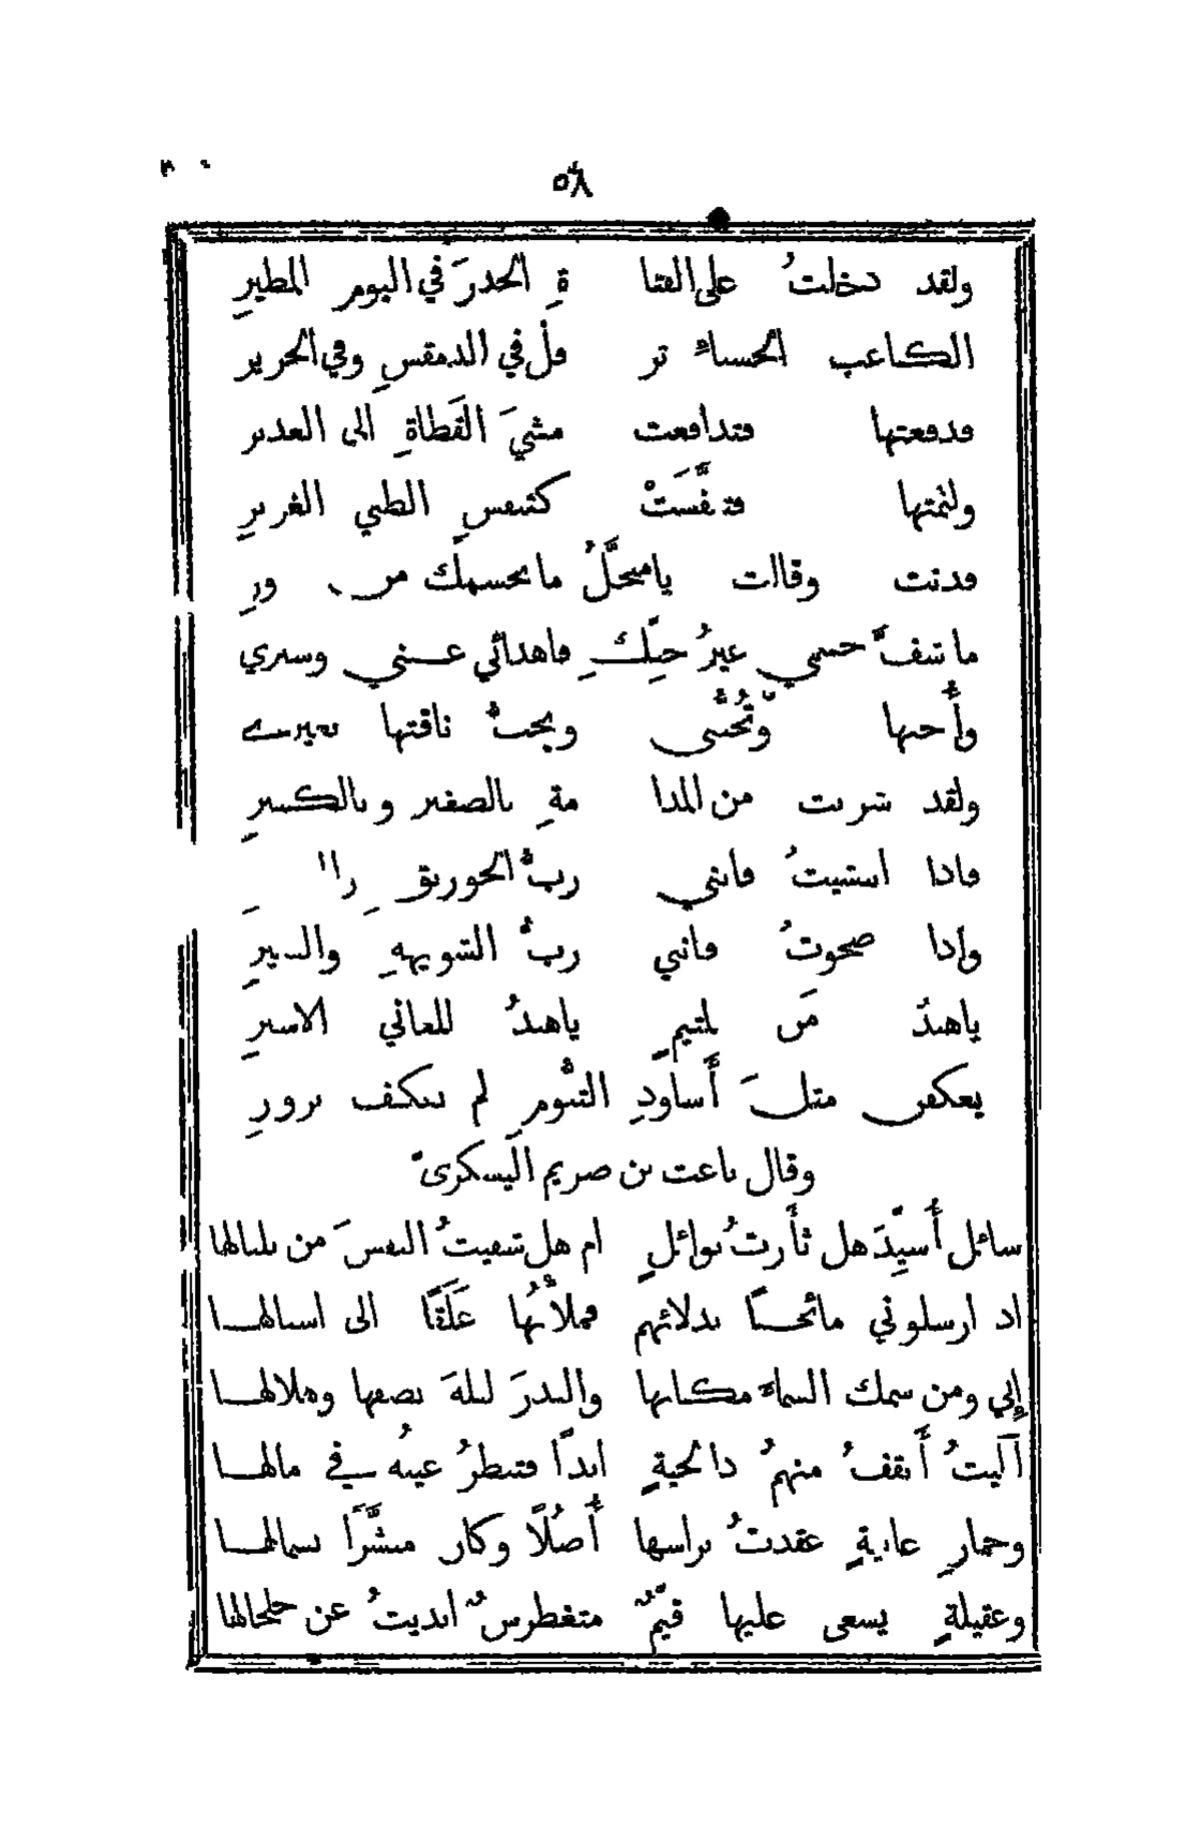 ٥٨
ولقد دخلتُ على الفتا ةِ الخدرَ في اليوم المطيرِ
الكاعب الحسناءِ تر فلُ في الدمقسِ وفي الحرير
فدفعتها فتدافعت مشيَ القَطاةِ الى الغدير
ولثمتها فتنفَّسَتْ كتنفسِ الظبي الغريرِ
فدنت وقالت يا منخَّلُ ما بجسمك من
ما شفَّ جسمي غيرُ حبِّكِ فاهدائي عني وسيري
وأُحبها وتُحبُّني ويحبُّ ناقتها بعيري
ولقد شربت من المدا مةِ بالصغير وبالكبيرِ
فاذا انتشيتُ فانني ربُّ الخورنق
واذا صحوتُ فانني ربُّ الشويهةِ والبعيرِ
يا هندُ مَن لمتيمٍ يا هندُ للعاني الاسيرِ
يعكفن مثلَ أَساودِ التنُّومِ لم تعكف بزورِ
وقال باعث بن صريم اليشكرى
سائل أُسيِّدَ هل ثأَرتُ بوائلٍ ام هل شفيتُ النفسَ من بلبالها
اذ ارسلوني مائحًا بدلائهم فملأتُها عَلَقًا الى اسبالها
إِني ومن سمك السماءَ مكانها والبدرَ ليلةَ نصفها وهلالها
آليتُ أَثقفُ منهمُ ذا لحيةٍ ابداً فتنظرُ عينُه في مالها
وخمارِ غانيةٍ عقدتُ براسها أُصُلًا وكان منشَّرًا بشمالها
وعقيلةٍ يسعى عليها قيّمٌ متغطرسٌ ابديتُ عن خلخالها